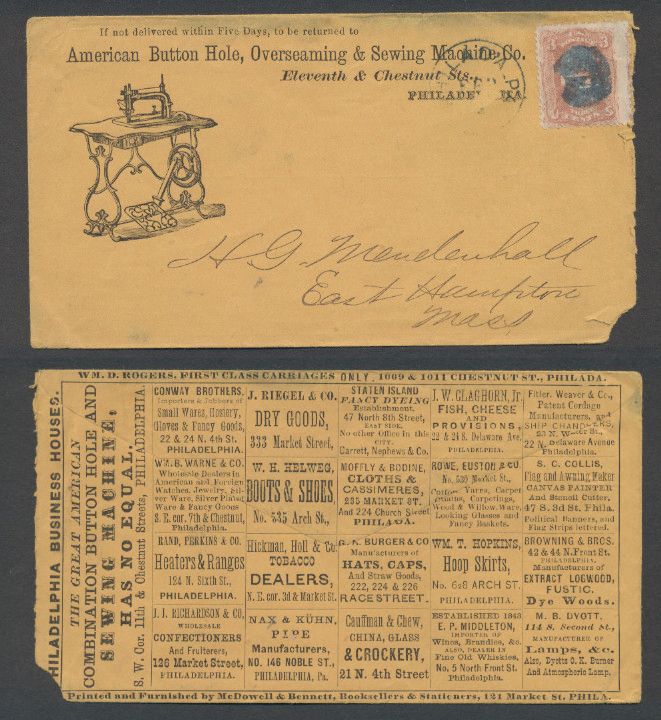 If not delivered within Five Days, to be returned to
American Button Hole, Overseaming & Sewing Machine Co.
Eleventh & Chestnut Sts.,
PHILADE PA.
3 CENTS
H. G. Mendenhall
East Hampton
Mass
WM. D. ROGERS. FIRST CLASS CARRIAGES ONLY, 1009 & 1011 CHESTNUT ST., PHILADA.
PHILADELPHIA BUSINESS HOUSES.
THE GREAT AMERICAN
COMBINATION BUTTON HOLE AND
SEWING MACHINE.
HAS NO EQUAL.
S. W. Cor. 11th & Chestnut Streets, PHILADELPHIA.
CONWAY BROTHERS,
Importers & Jobbers of
Small Wares, Hosiery,
Gloves & Fancy Goods,
22 & 24 N. 4th St.
PHILADELPHIA.
WM. B. WARNE & CO.
Wholesale Dealers in
American and Foreign
Watches, Jewelry, Silver Ware, Silver Plated
Ware & Fancy Goods
S. E. cor. 7th & Chestnut,
Philadelphia.
RAND, PERKINS & CO.
Heaters & Ranges
124 N. Sixth St.,
PHILADELPHIA.
J. J. RICHARDSON & CO.
WHOLESALE
CONFECTIONERS
And Fruiterers,
126 Market Street,
PHILADELPHIA.
J. RIEGEL & CO.
DRY GOODS,
333 Market Street,
W. H. HELWEG,
BOOTS & SHOES,
No. 535 Arch St.,
Hickman, Holl & Co.
TOBACCO
DEALERS,
N. E. cor. 3d & Market St.
NAX & KÜHN,
PIPE
Manufacturers,
NO. 146 NOBLE ST.,
PHILADELPHIA, Pa.
STATEN ISLAND
FANCY DYEING
Establishment,
47 North 8th Street,
EAST SIDE.
No other Office in this
CITY.
Barrett, Nephews & Co.
MOFFLY & BODINE,
CLOTHS &
CASSIMERES,
235 MARKET ST.
And 224 Church Street
PHILADA.
G. K. BURGER & CO
Manufacturers of
HATS, CAPS,
And Straw Goods,
222, 224 & 226
RACE STREET.
Cauffman & Chew,
CHINA, GLASS
& CROCKERY,
21 N. 4th Street
J. W. CLAGHORN, Jr.
FISH, CHEESE
AND
PROVISIONS,
22 & 24 S. Delaware Ave.
PHILADELPHIA.
ROWE, EUSTON & CO.
No. 523 Market St.,
Cotton Yarns, Carpet
Chains, Carpetings,
Wood & Willow Ware,
Looking Glasses and
Fancy Baskets.
WM. T. HOPKINS,
Hoop Skirts,
No. 628 ARCH ST.
PHILADELPHIA.
ESTABLISHED 1843
E. P. MIDDLETON,
IMPORTER OF
Wines, Brandies, &c.
ALSO, DEALER IN
Fine Old Whiskies,
No. 5 North Front St.
Philadelphia.
Fitler, Weaver & Co.,
Patent Cordage
Manufacturers, and
SHIP CHANDLERS,
23 N. Water St.,
22 N. Delaware Avenue
Philadelphia.
S. C. COLLIS,
Flag and Awning Maker
CANVAS PAINTER
And Stencil Cutter,
47 S. 3d St. Phila.
Political Banners, and
Flag Strips lettered.
BROWNING & BROS.
42 & 44 N. Front St.
PHILADELPHIA,
Manufacturers of
EXTRACT LOGWOOD,
FUSTIC.
Dye Woods.
M. B. DYOTT,
114 S. Second St.,
MANUFACTURER OF
Lamps, &c.
Also, Dyotts C. E. Burner
And Atmospheric Lamp.
Printed and Furnished by McDowell & Bennett, Booksellers & Stationers, 121 Market St. PHILA.